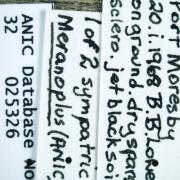 Port Moresby
20.i.1968 B.B. Lowe
on ground dry sparse
sclero jet black soi
1 of 2 sympatric
Meranoplus (Aic
ANIC Database No
32 025326